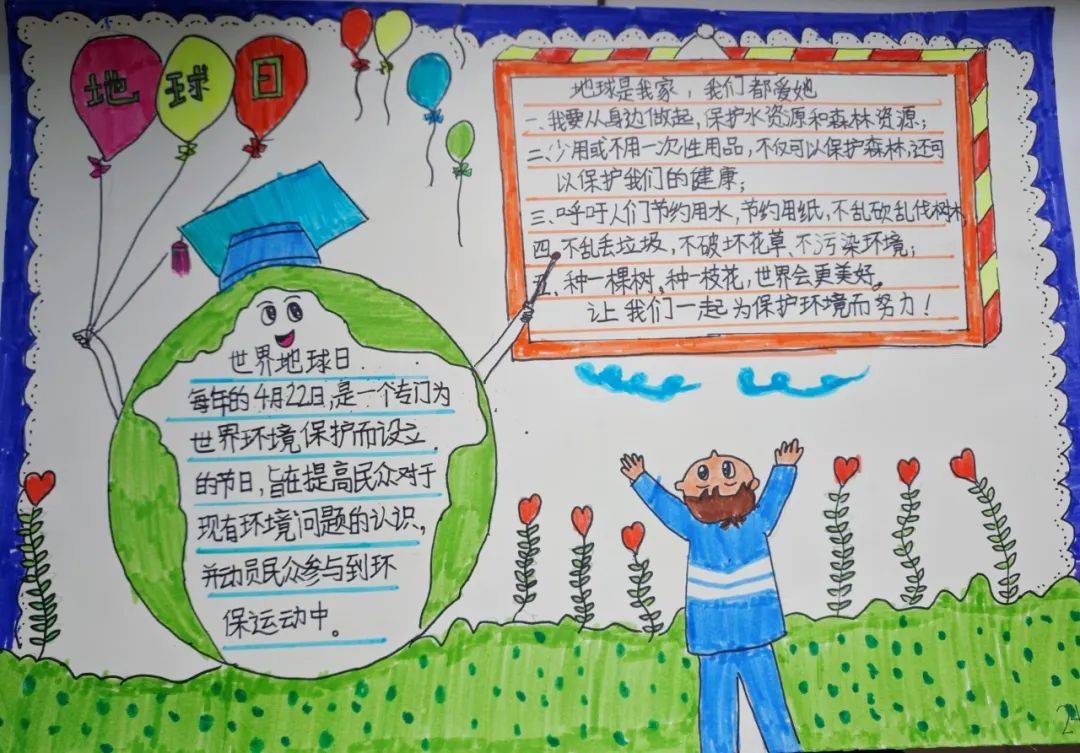 地球日
世界地球日
每年的4月22日,是一个专门为
世界环境保护而设立
的节日,旨在提高民众对于
现有环境问题的认识,
并动员民众参与到环
保运动中。
地球是我家,我们都爱她
一、我要从身边做起,保护水资源和森林资源;
二、少用或不用一次性用品,不仅可以保护森林,还可
以保护我们的健康;
三、呼吁人们节约用水,节约用纸,不乱砍乱伐树木
四、不乱丢垃圾,不破坏花草、不污染环境;
五、种一棵树,种一枝花,世界会更美好。
让我们一起为保护环境而努力!